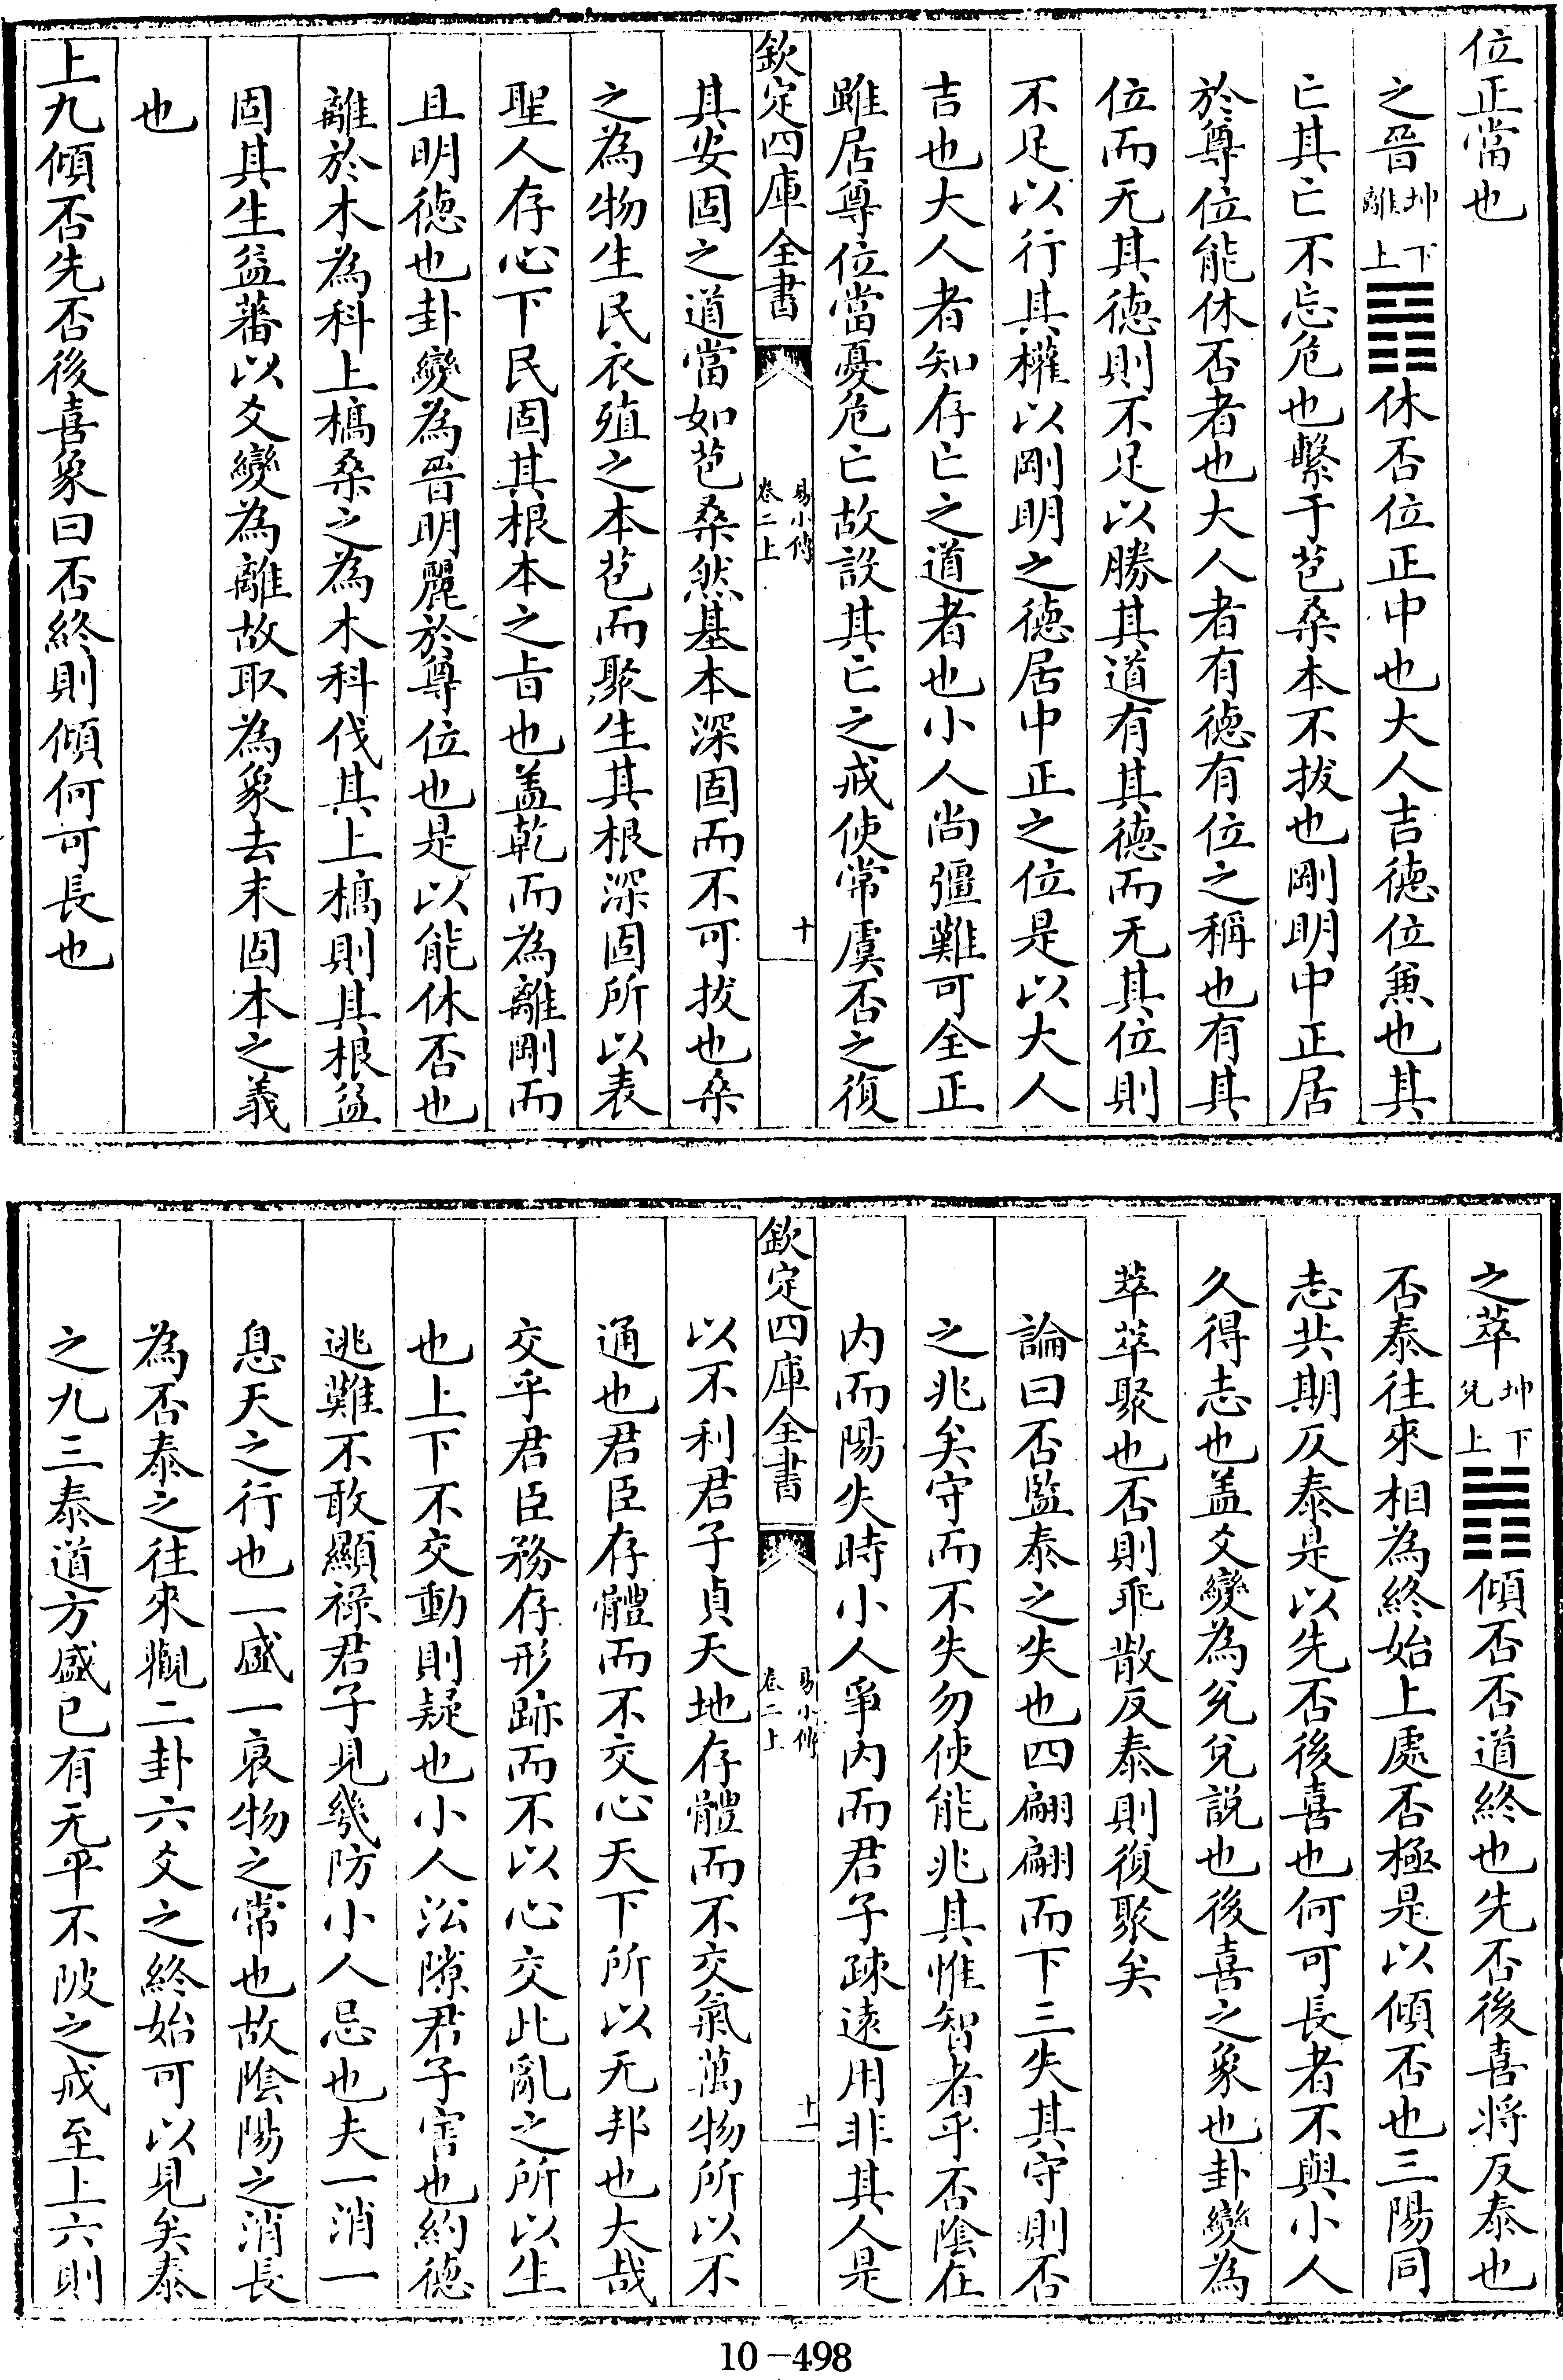 位正當也
之晉坤下離上䷋休否位正中也大人吉德位兼也其
亡其亡不忘危也繫于苞桑本不拔也剛明中正居
於尊位能休否者也大人者有德有位之稱也有其
位而无其德則不足以勝其道有其德而无其位則
不足以行其權以剛明之德居中正之位是以大人
吉也大人者知存亡之道者也小人尚彊難可全正
雖居尊位當憂危亡故設其亡之戒使常虞否之復
欽定四庫全書
易小傳
卷二上
十
其安固之道當如苞桑然基本深固而不可拔也桑
之為物生民衣殖之本苞而聚生其根深固所以表
聖人存心下民固其根本之旨也盖乾而為離剛而
且明德也卦變為晉明麗於尊位也是以能休否也
離於木為科上槁桑之為木科伐其上槁則其根益
固其生益蕃以爻變為離故取為象去末固本之義
也
上九傾否先否後喜象曰否終則傾何可長也
之萃坤下兊上䷋傾否否道終也先否後喜將反泰也
否泰往來相為終始上處否極是以傾否也三陽同
志共期反泰是以先否後喜也何可長者不與小人
久得志也盖爻變為兊兊說也後喜之象也卦變為
萃萃聚也否則乖散反泰則復聚矣
論曰否監泰之失也四翩翩而下三失其守則否
之兆矣守而不失勿使能兆其惟智者乎否陰在
内而陽失時小人爭内而君子疎逺用非其人是
欽定四庫全書
易小傳
卷二上
十一
以不利君子貞天地存體而不交氣萬物所以不
通也君臣存體而不交心天下所以无邦也大哉
交乎君臣務存形跡而不以心交此亂之所以生
也上下不交動則疑也小人訟隙君子害也約德
逃難不敢顯祿君子見幾防小人忌也夫一消一
息天之行也一盛一衰物之常也故陰陽之消長
為否泰之往來觀二卦六爻之終始可以見矣泰
之九三泰道方盛已有无平不陂之戒至上六則
10-498